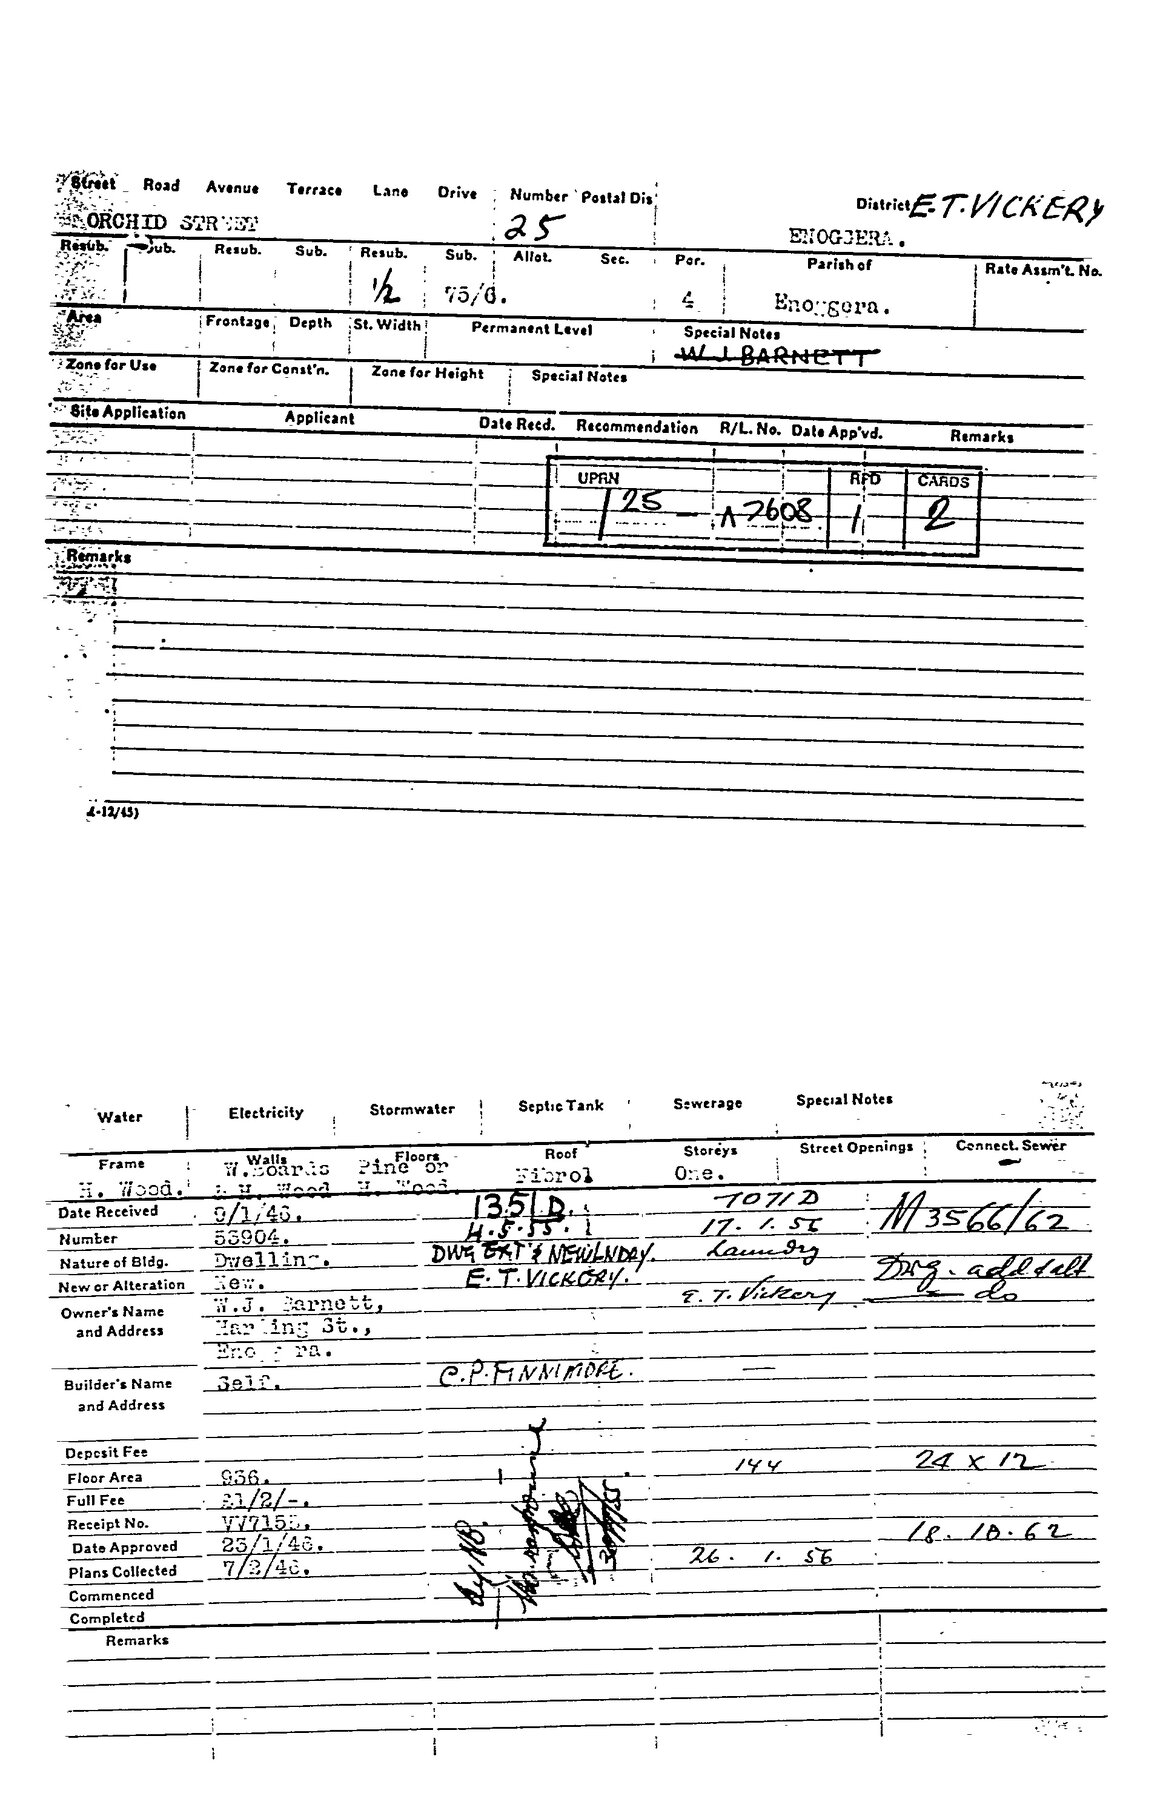 Street Road Avenue Terrace Lane Drive Number Postal Dis District E.T. VICKERY
ORCHID STREET 25 ENOGGERA.
Resub. Sub. Resub. Sub. Resub. Sub. Allot. Sec. Por. Parish of Rate Assm't. No.
1/2 75/6. 4 Enoggera.
Area Frontage Depth St. Width Permanent Level Special Notes
W J BARNETT
Zone for Use Zone for Const'n. Zone for Height Special Notes
Site Application Applicant Date Recd. Recommendation R/L. No. Date App'vd. Remarks
UPRN RPD CARDS
/ 25 — 7608 1 2
Remarks
-12/45)
Water Electricity Stormwater Septic Tank Sewerage Special Notes
Frame Walls Floors Roof Storeys Street Openings Connect. Sewer
H. Wood. W.Boards & H. Wood Pine or H. Wood. Fibrol One.
Date Received 9/1/46. 1351 D. 7071 D M 3566/62
Number 53904. 4.5.55. 17.1.56
Nature of Bldg. Dwelling. DWG EXT & NEW LNDRY. Laundry Dwg. add & alt
New or Alteration New. E.T. VICKERY. E.T. Vickery do
Owner's Name W.J. Barnett,
and Address Harling St.,
Enoggera.
Builder's Name Self. C.P. FINNIMORE. —
and Address
Deposit Fee
Floor Area 936. 144 24 x 12
Full Fee £1/2/-.
Receipt No. VV7155.
Date Approved 23/1/46. 26.1.56 18.10.62
Plans Collected 7/2/46.
Commenced
Completed
Remarks